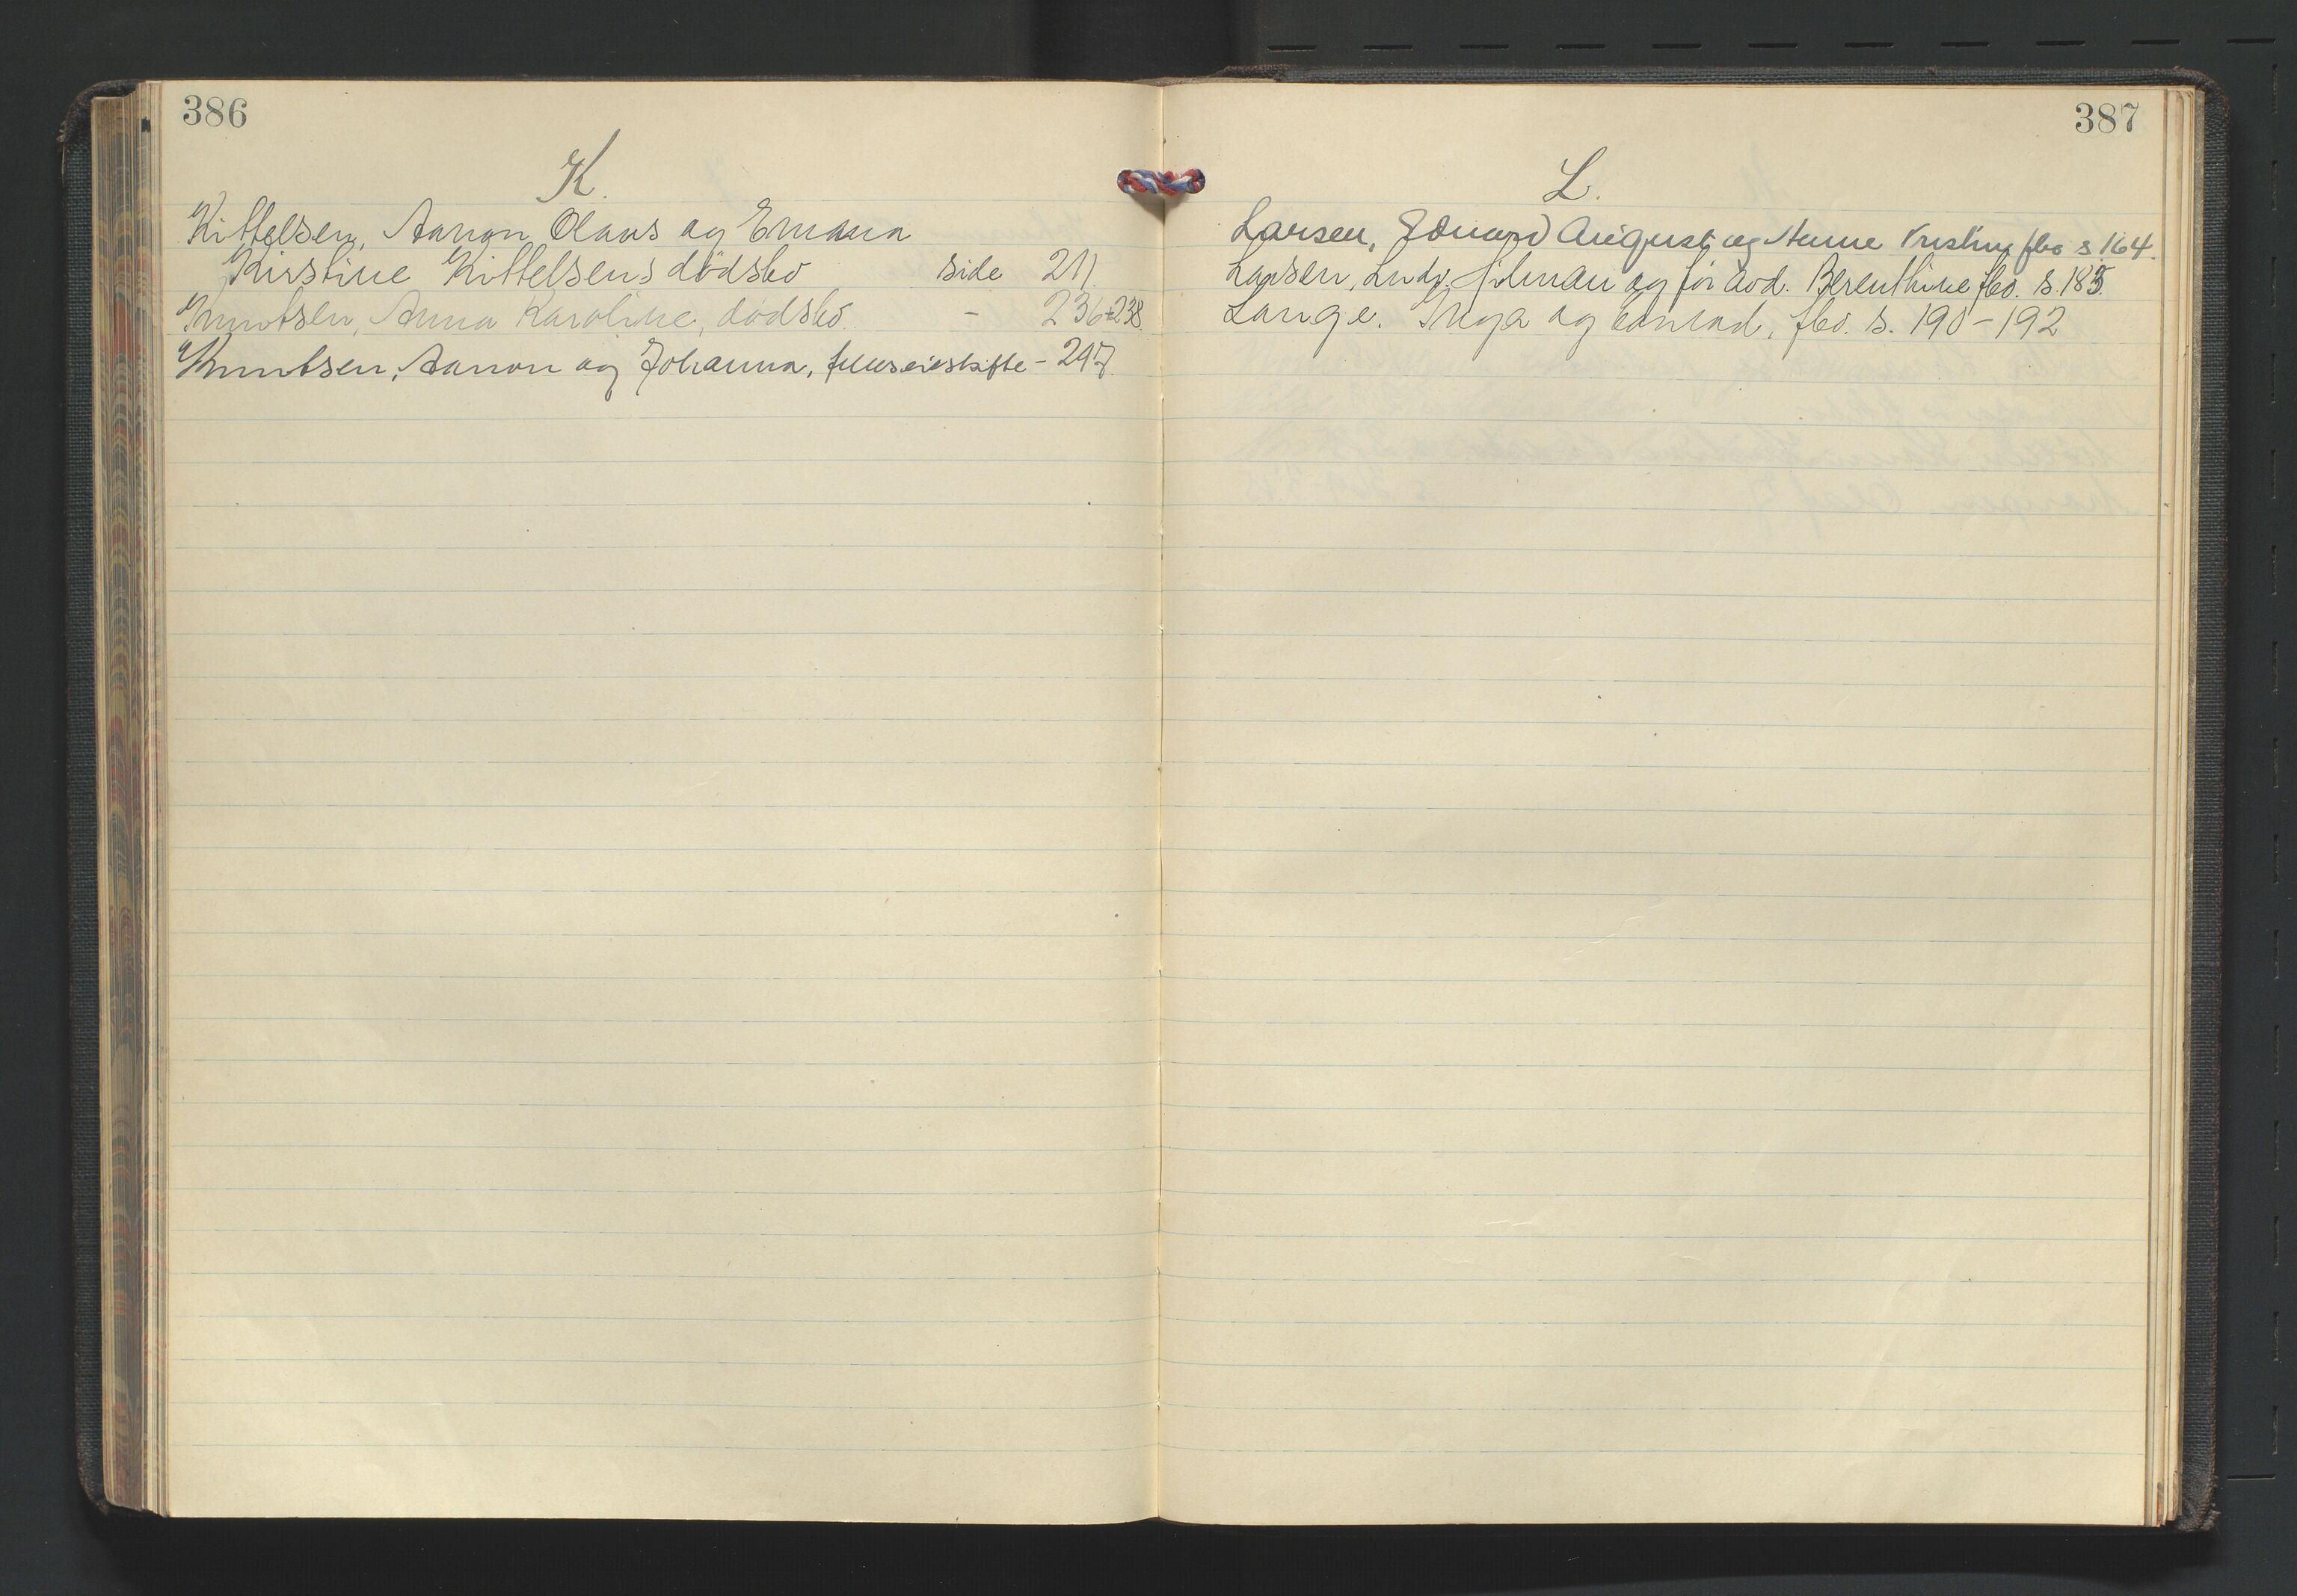 386
K.
Kittelsen, Aanon Olaus og Emma
Kirstine Kittelsens dödsbo side 211.
Knutsen, Anna Karoline, dödsbo. - 236-238.
Knutsen, Aanon og Johanna, felleseieskifte - 297.
387
L.
Larsen, Edvard August og Anne Kristine fbo s. 164.
Larsen, Ludv. Hilman og før død. Berenthine fbo. s. 185.
Lange, Inga og Conrad, fbo. s. 190-192